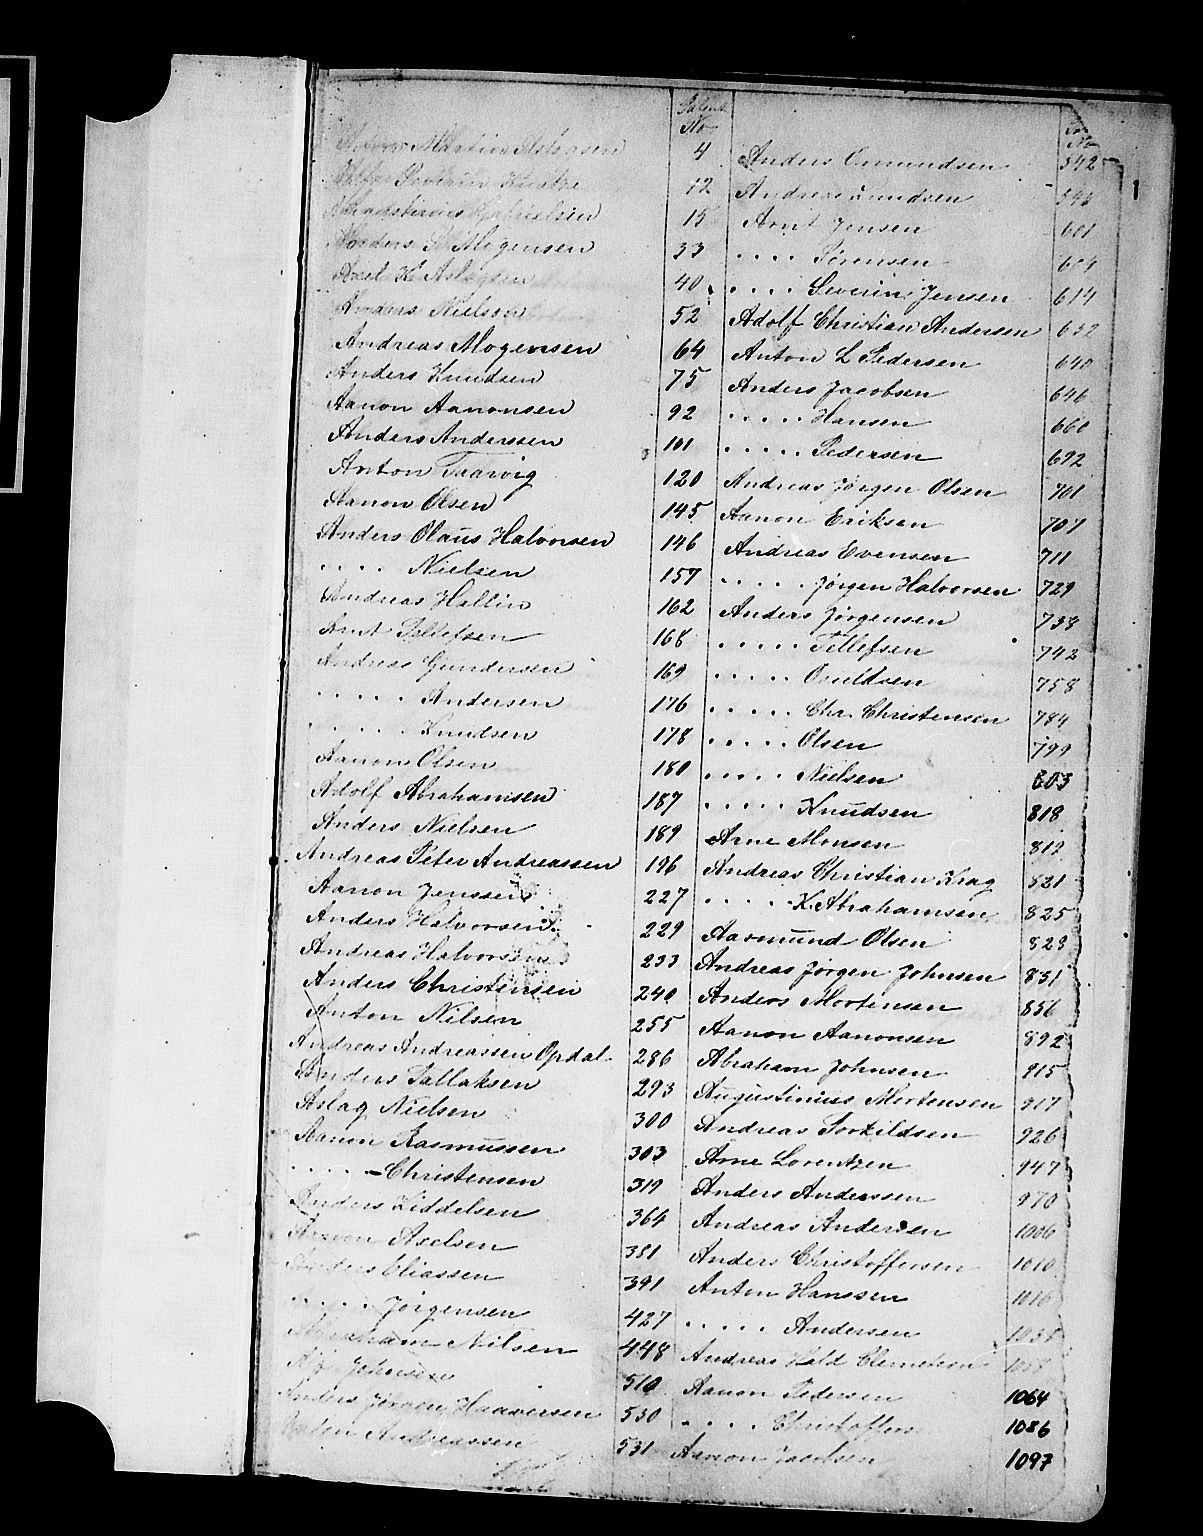 Patent
No
Martin Aslagsen 4
Severin 12
Gabrielsen 15
Anders Mogensen 33
Axel K. Aslagsen 40
Anders Nielsen 52
Andreas Mogensen 64
Anders Knudsen 75
Aanon Aanonsen 92
Anders Anderssen 101
Anton Taarvig 120
Aanon Olsen 145
Anders Olaus Halvorsen 146
. . . . Nielsen 157
Andreas Hallin 162
Arnt Tellefsen 168
Andreas Gundersen 169
. . . . . Andersen 176
. . . . . Knudsen 178
Aanon Olsen 180
Adolf Abrahamsen 187
Anders Nielsen 189
Andreas Peter Andreassen 196
Aanon Jenssen 227
Anders Halvorsen 229
Andreas Halvorsen 233
Anders Christensen 240
Anton Nilsen 255
Andreas Andreassen Opdal 286
Anders Tallaksen 293
Aslag Nielsen 300
Aanon Rasmussen 303
. . . . - Christensen 319
Anders Kiddelsen 364
Axelsen 381
Anders Eliassen 391
. . . . Jörgensen 427
Abraham Nilsen 448
Johnsen 510
Anders Jörgen Haaversen 530
Andreassen 531
No
Anders Omundsen 542
Andreas Lundsen
Arnt Jensen 601
. . . . Sörensen 604
. . . . Severin Jensen 614
Adolf Christian Andersen 632
Anton L Pedersen 640
Anders Jacobsen 646
. . . . . Hansen 660
. . . . . Pedersen 692
Andreas Jörgen Olsen 701
Aanon Eriksen 707
Andreas Evensen 711
. . . . . Jörgen Halvorsen 729
Anders Jörgensen 738
. . . . . Tellefsen 742
. . . . . 758
. . . . . Chr. Christensen 784
. . . . . Olsen 799
. . . . . Nielsen 803
. . . . . Knudsen 818
Arne Monsen 819
Andreas Christian Krag 821
. . . . . K. Abrahamsen 825
Aasmund Olsen 829
Andreas Jörgen Johnsen 851
Anders Mortensen 856
Aanon Aanonsen 892
Abraham Johnsen 915
Augustinius Mortensen 917
Andreas Torkildsen 926
Arne Lorentzen 947
Anders Anderssen 970
Andreas Andersen 1006
Anders Christoffersen 1010
Anton Hanssen 1016
. . . . . Andersen
Andreas Clemetsen
Aanon Pedersen 1064
. . . . Christoffers 1086
Aanon Jacobsen 1097